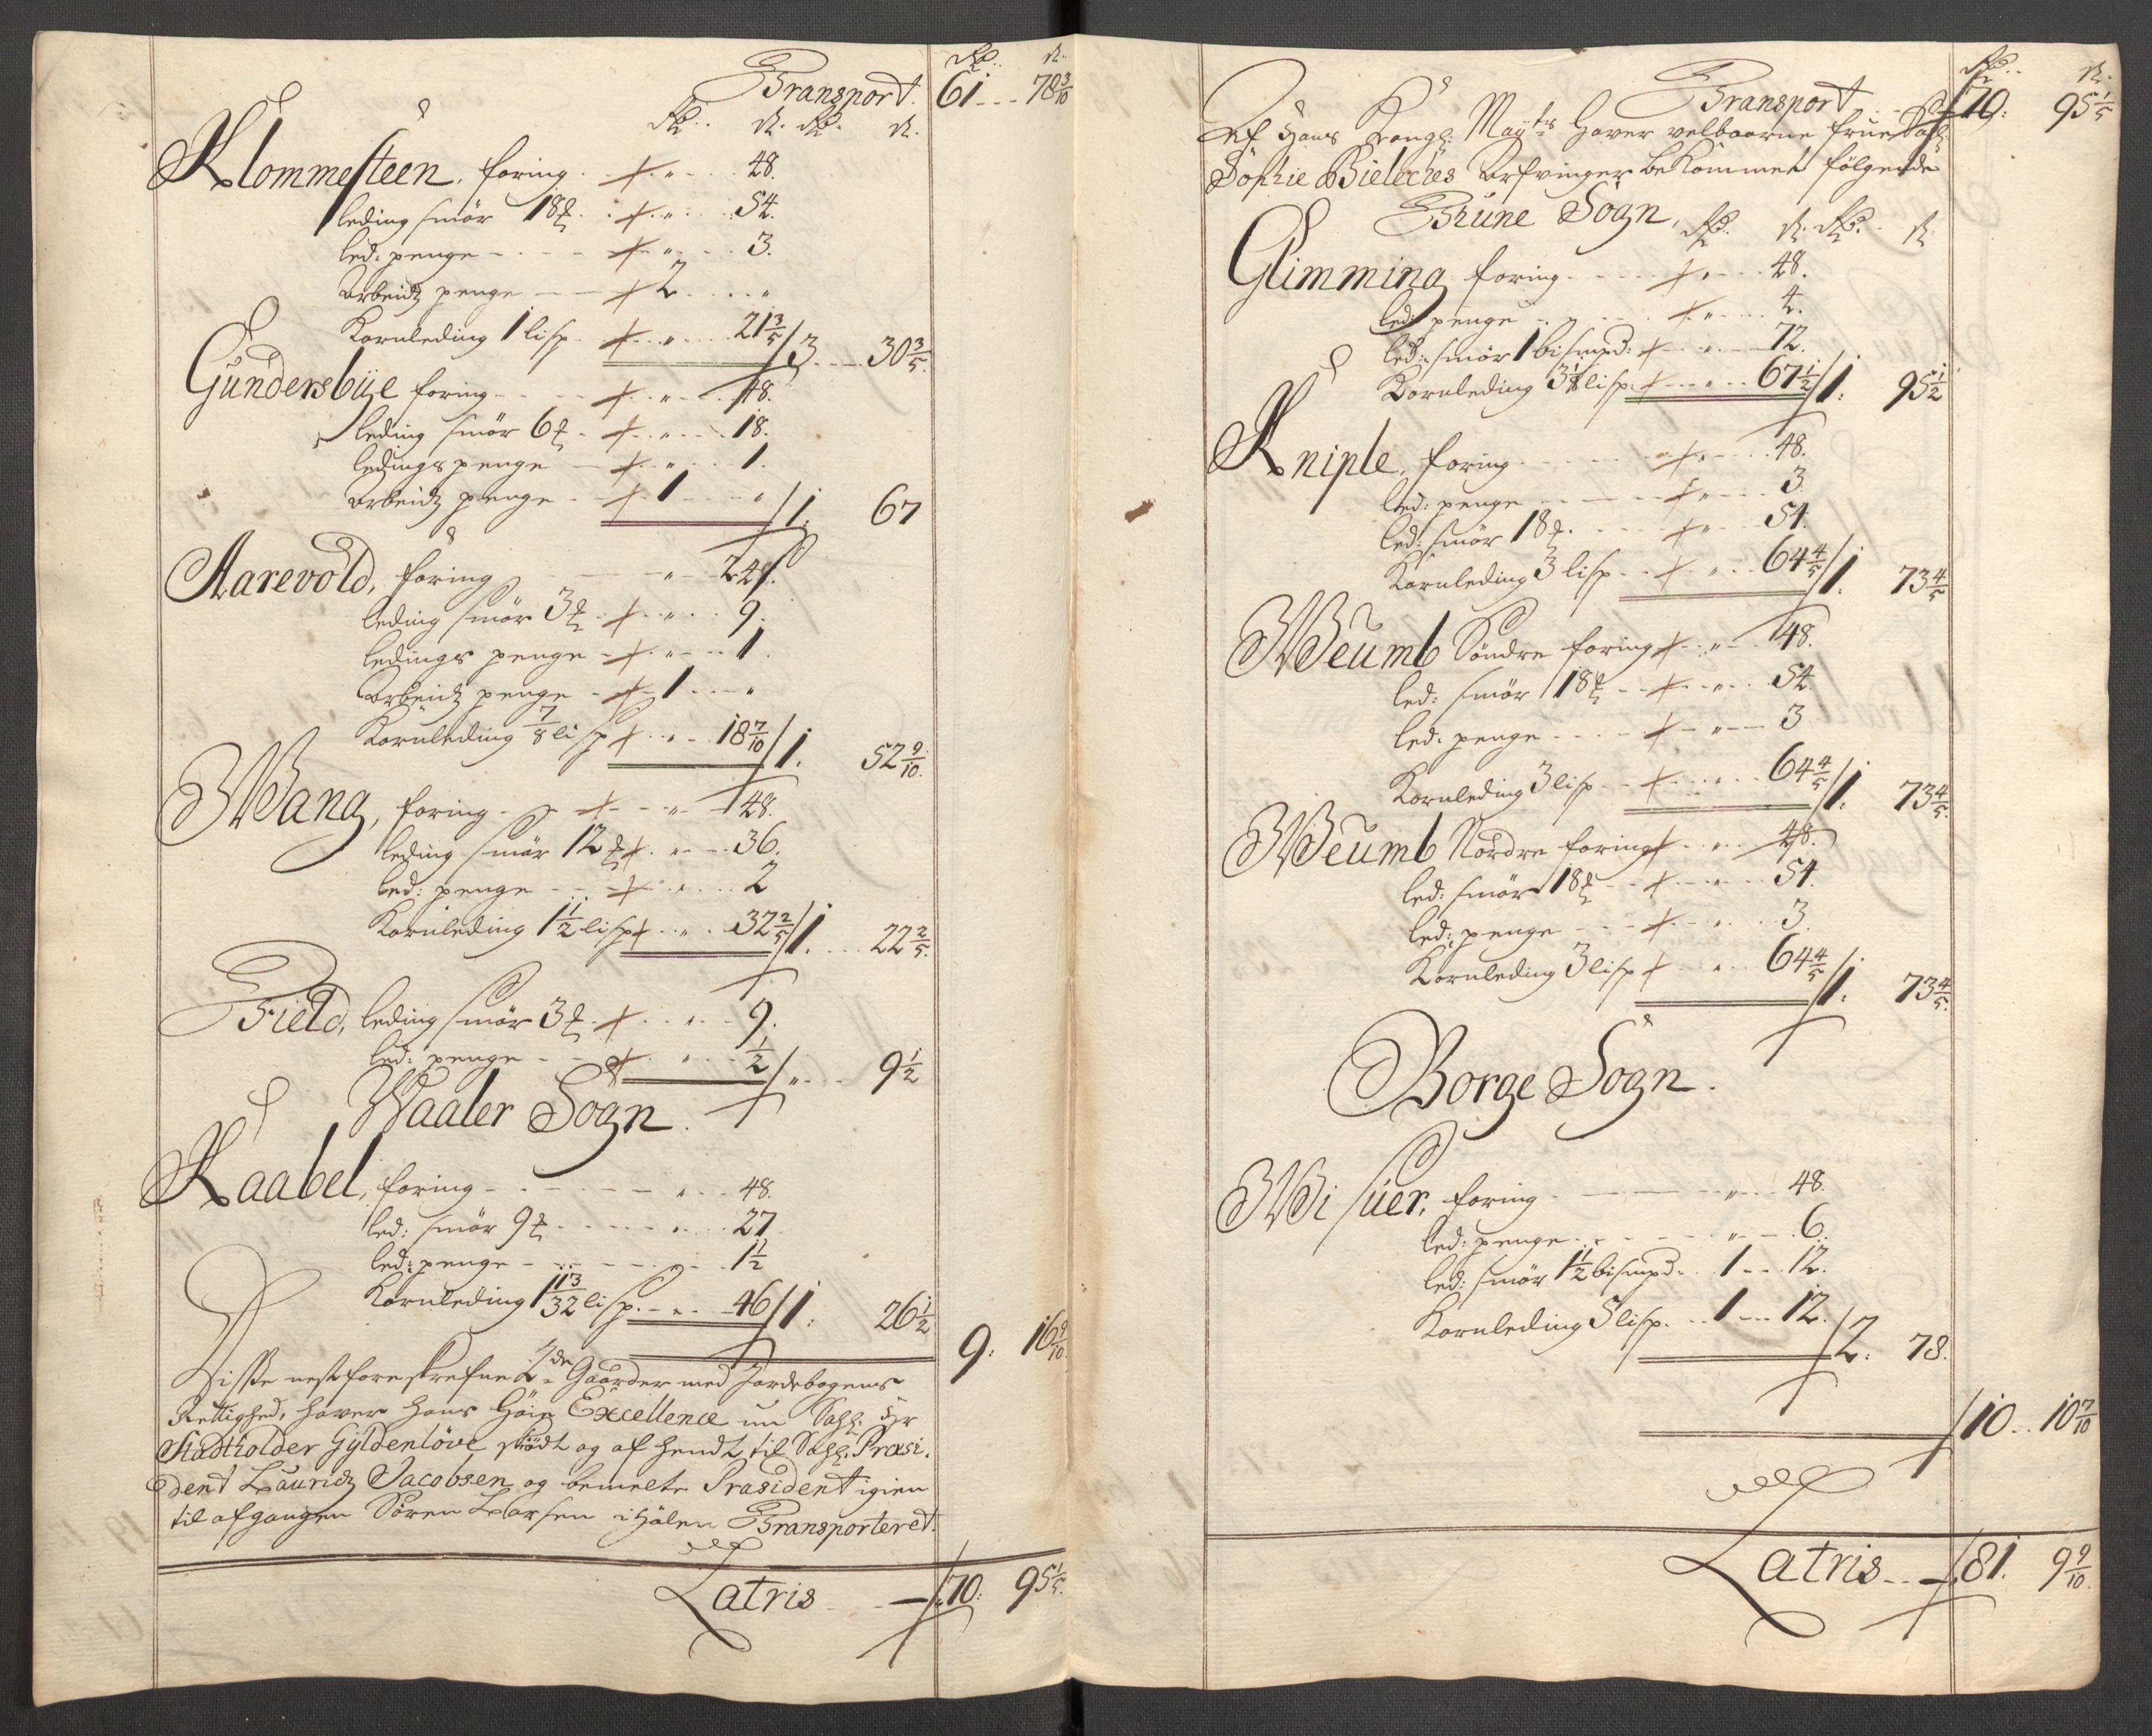 Rd. s.
Transport. 61 - - - 78 3/10
Rd. s. Rd. s.
Klommesteen, foring . . + . „ . . . 48.
leding smör 18 ℔ . . + . „ . . . 54.
led: penge - . - - + . „ . . . 3.
Arbeidz penge - - + 2 . . . „
Kornleding 1 lisp. + . . „ . . . 21 3/5 / 3 . - - 30 3/5.
Gundersbÿe foring - - - + . . „ . . 48.
leding smör 6 ℔ . + . . „ . . . 18.
ledings penge - + . . „ . . . 1.
Arbeidz penge . - + 1 - - - „ / 1: 67
Aarevold, foring - - - „ - 24.
leding smör 3 ℔ . + . . „ . . . 9.
ledings penge - + . . „ . . . 1.
Arbeidz penge . + - 1 . . - „
Kornleding 7/8 lisp + . . „ . . 18 7/10 / 1. 52 9/10.
Wang, foring - - + - - „ - 48.
leding smör 12 ℔ + . „ . . . 36.
led: penge - - + . . „ . . . 2
Kornleding 1 1/2 lisp + . . „ . . 32 2/5 / 1. . . . 22 2/5.
Field, leding smör 3 ℔ . + . . . „ . . . 9.
led: penge - - + . . „ . . . 1/2 / „ . . . 9 1/2
Waaler Sogn.
Kaabel, foring - - - - „ . . . 48.
led: smör 9 ℔ . . . . . „ . . . 27
led: penge - . - - - „ . . 1 1/2
Kornleding 1 13/32 lisp. - „ . - 46 / 1: 26 1/2
9: 16 9/10
Disse nest foreskrefne 2de Gaarder med Jordebogens
Rettighed, hafver hans Höie Excellence nu Sahl: Hr
Stadtholder Gyldenlöve skiödt og af hendt til Sahl: Præsi-
dent Lauridz Jacobsen og bemelte Præsident igien
til afgangen Sören Larsen i Hölen Transporteret.
Latris - - - 70: 95 1/5.
Rd. s.
Transport - - 70: 95 1/5
Af Hans Kongl: Mayts hafver velbaarne frue Sahl:
Sophie Bielches Arfvinger bekommet fölgende
Thune Sogn, Rd. s. Rd. s.
Glimming foring . - - - + . - - 48.
led: penge . . - . . . + . „ . . . 4.
led: smör 1 bismpd: + - . „ . . . 72.
Kornleding 3 1/8 lisp. + . . . „ . . 67 1/2 / 1: 95 1/2
Kniple, foring . - - - - + . - . . 48.
led: penge . - - - - + „ . . . 3
led: smör 18 ℔ . - - - + „ . . 54.
Kornleding 3 lisp. . . + . „ . . 64 4/5 / 1. 73 4/5
Weumb Söndre foring + - „ - 48.
led: smör 18 ℔ - - + . . „ . . 54
led: penge . - - . + - „ - - 3
Kornleding 3 lisp - + . . . „ . . 64 4/5 / 1. 73 4/5.
Weumb Nordre foring + . . „ . . 48.
led: smör 18 ℔ - - + . . „ . . . 54.
led: penge - - - + . . „ . . . 3.
Kornleding 3 lisp + . . . „ . . 64 4/5 / 1: 73 4/5.
Borge Sogn.
Wisuer, foring . - - - - „ . . . 48.
led: penge . - - - - „ - - 6.
led: smör 1 1/2 bismpd. . 1 - - 12.
Kornleding 5 lisp. . . 1 - - 12. / 2. 78.
10 . . 10 7/10
Latris - - - 81. 9 9/10.